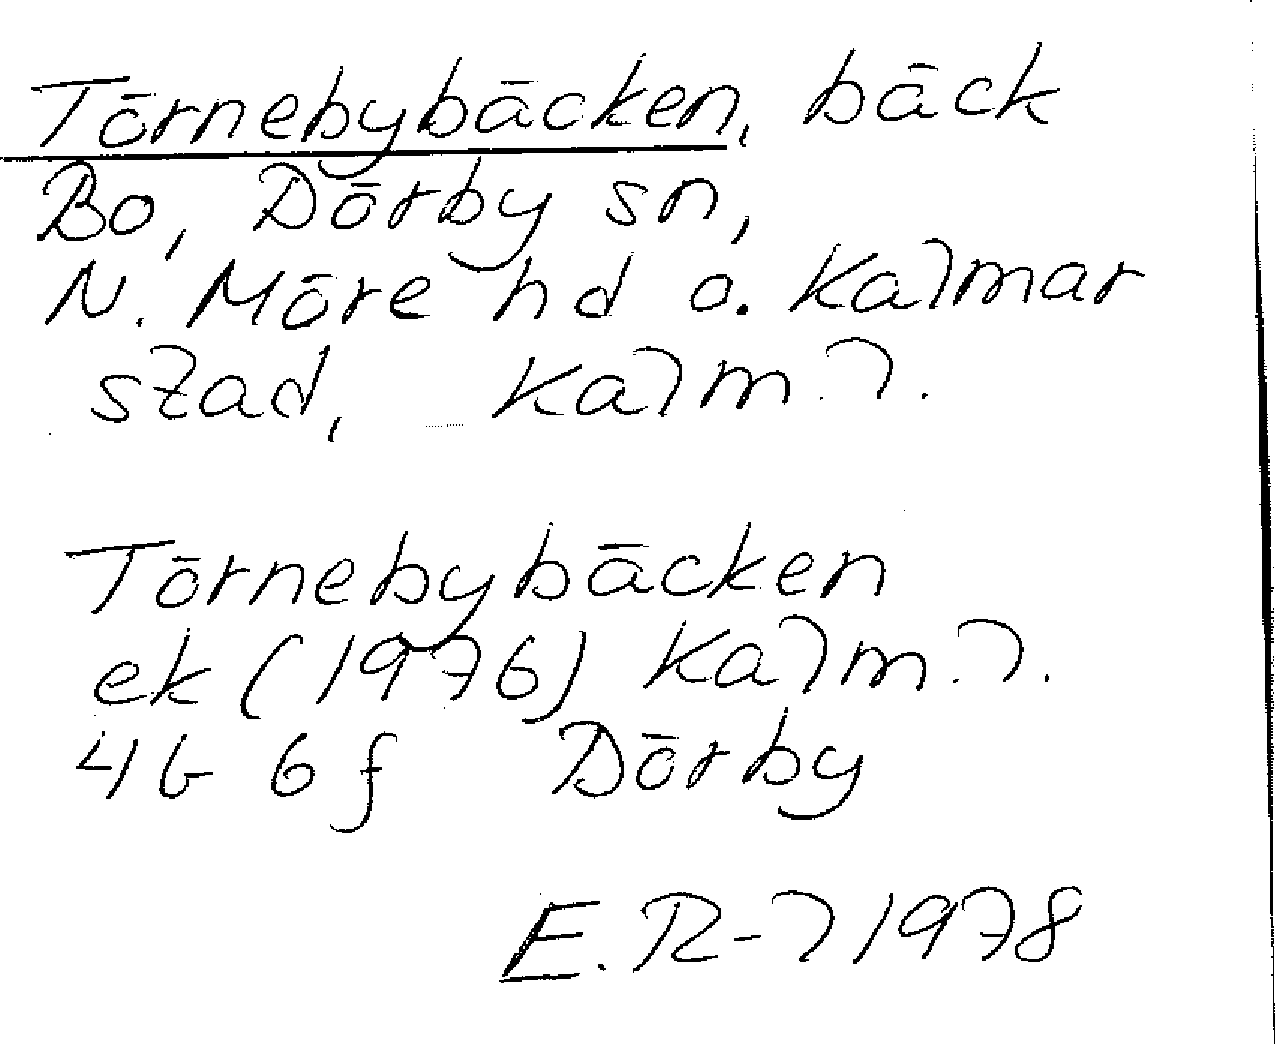 Törnebybäcken, bäck
Bo, Dörby sn,
N. Möre hd o. Kalmar
stad, Kalm. l.
Törnebybäcken
ek (1976) Kalm. l.
4G 6f Dörby
E. R-l 1978